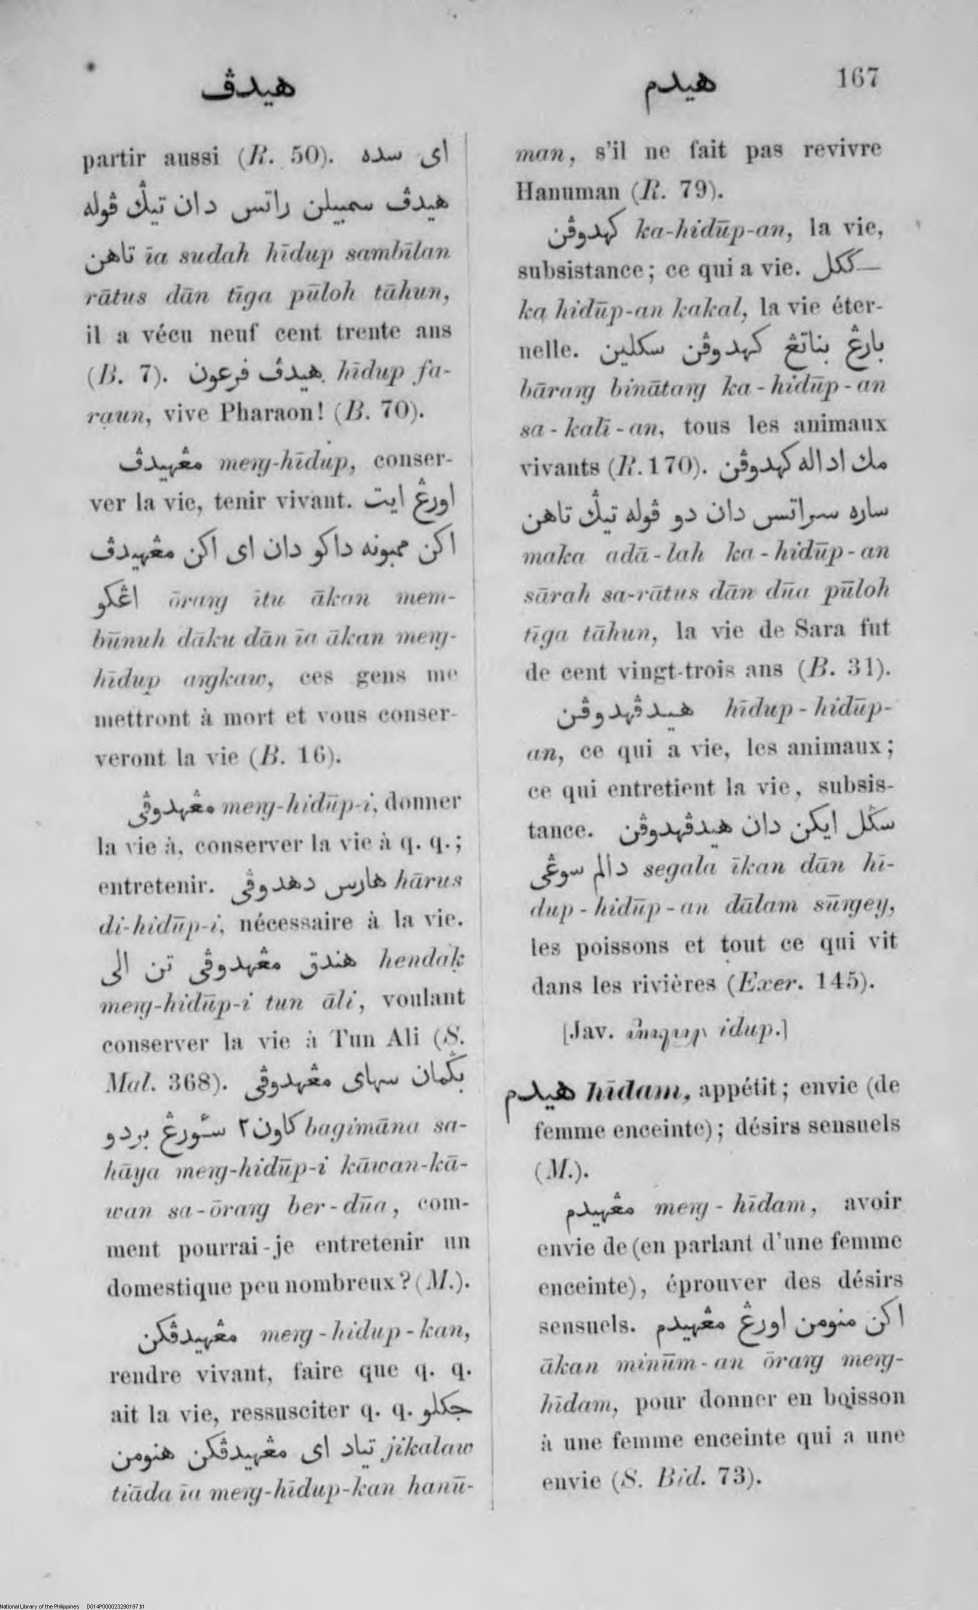 هيدڤ
هيدم
167
partir aussi (R. 50). اى سده
هيدڤ سمبيلن راتس دان تيݢ ڤوله
تاهن īa sudah hīdup sambīlan
rātus dān tīga pūloh tāhun,
il a vécu neuf cent trente ans
(B. 7). هيدڤ فرعون hīdup fa-
raun, vive Pharaon! (B. 70).
مڠهيدڤ meng-hīdup, conser-
ver la vie, tenir vivant. اورڠ ايت
اكن ممبونه داكو دان اى اكن مڠهيدڤ
اڠكو ōrang ītu ākan mem-
būnuh dāku dān īa ākan meng-
hīdup angkaw, ces gens me
mettront à mort et vous conser-
veront la vie (B. 16).
مڠهدوڤى meng-hidūp-i, donner
la vie à, conserver la vie à q. q.;
entretenir. هارس دهدوڤى hārus
di-hidūp-i, nécessaire à la vie.
هندق مڠهدوڤى تن الى hendaḳ
meng-hidūp-i tun āli, voulant
conserver la vie à Tun Ali (S.
Mal. 368). بݢمان سهاى مڠهدوڤى
كاون٢ سٔورڠ بردو bagimāna sa-
hāya meng-hidūp-i kāwan-kā-
wan sa-ōrang ber-dūa, com-
ment pourrai-je entretenir un
domestique peu nombreux? (M.).
مڠهيدڤكن meng-hīdup-kan,
rendre vivant, faire que q. q.
ait la vie, ressusciter q. q. جكلو
تياد اى مڠهيدڤكن هنومن jikalaw
tiāda īa meng-hīdup-kan hanū-
man, s'il ne fait pas revivre
Hanuman (R. 79).
كهدوڤن ka-hidūp-an, la vie,
subsistance; ce qui a vie. —ككل
ka hidūp-an kakal, la vie éter-
nelle. بارڠ بناتڠ كهدوڤن سكلين
bārang binātang ka-hidūp-an
sa-kalī-an, tous les animaux
vivants (R. 170). مك اداله كهدوڤن
ساره سراتس دان دو ڤوله تيݢ تاهن
maka adā-lah ka-hidūp-an
sārah sa-rātus dān dūa pūloh
tīga tāhun, la vie de Sara fut
de cent vingt-trois ans (B. 31).
هيدڤهدوڤن hīdup-hidūp-
an, ce qui a vie, les animaux;
ce qui entretient la vie, subsis-
tance. سݢل ايكن دان هيدڤهدوڤن
دالم سوڠى segala īkan dān hī-
dup-hidūp-an dālam sūngey,
les poissons et tout ce qui vit
dans les rivières (Exer. 145).
[Jav. idup.]
هيدم hīdam, appétit; envie (de
femme enceinte); désirs sensuels
(M.).
مڠهيدم meng-hīdam, avoir
envie de (en parlant d'une femme
enceinte), éprouver des désirs
sensuels. اكن منومن اورڠ مڠهيدم
ākan minūm-an ōrang meng-
hīdam, pour donner en boisson
à une femme enceinte qui a une
envie (S. Bid. 73).
National Library of the Philippines